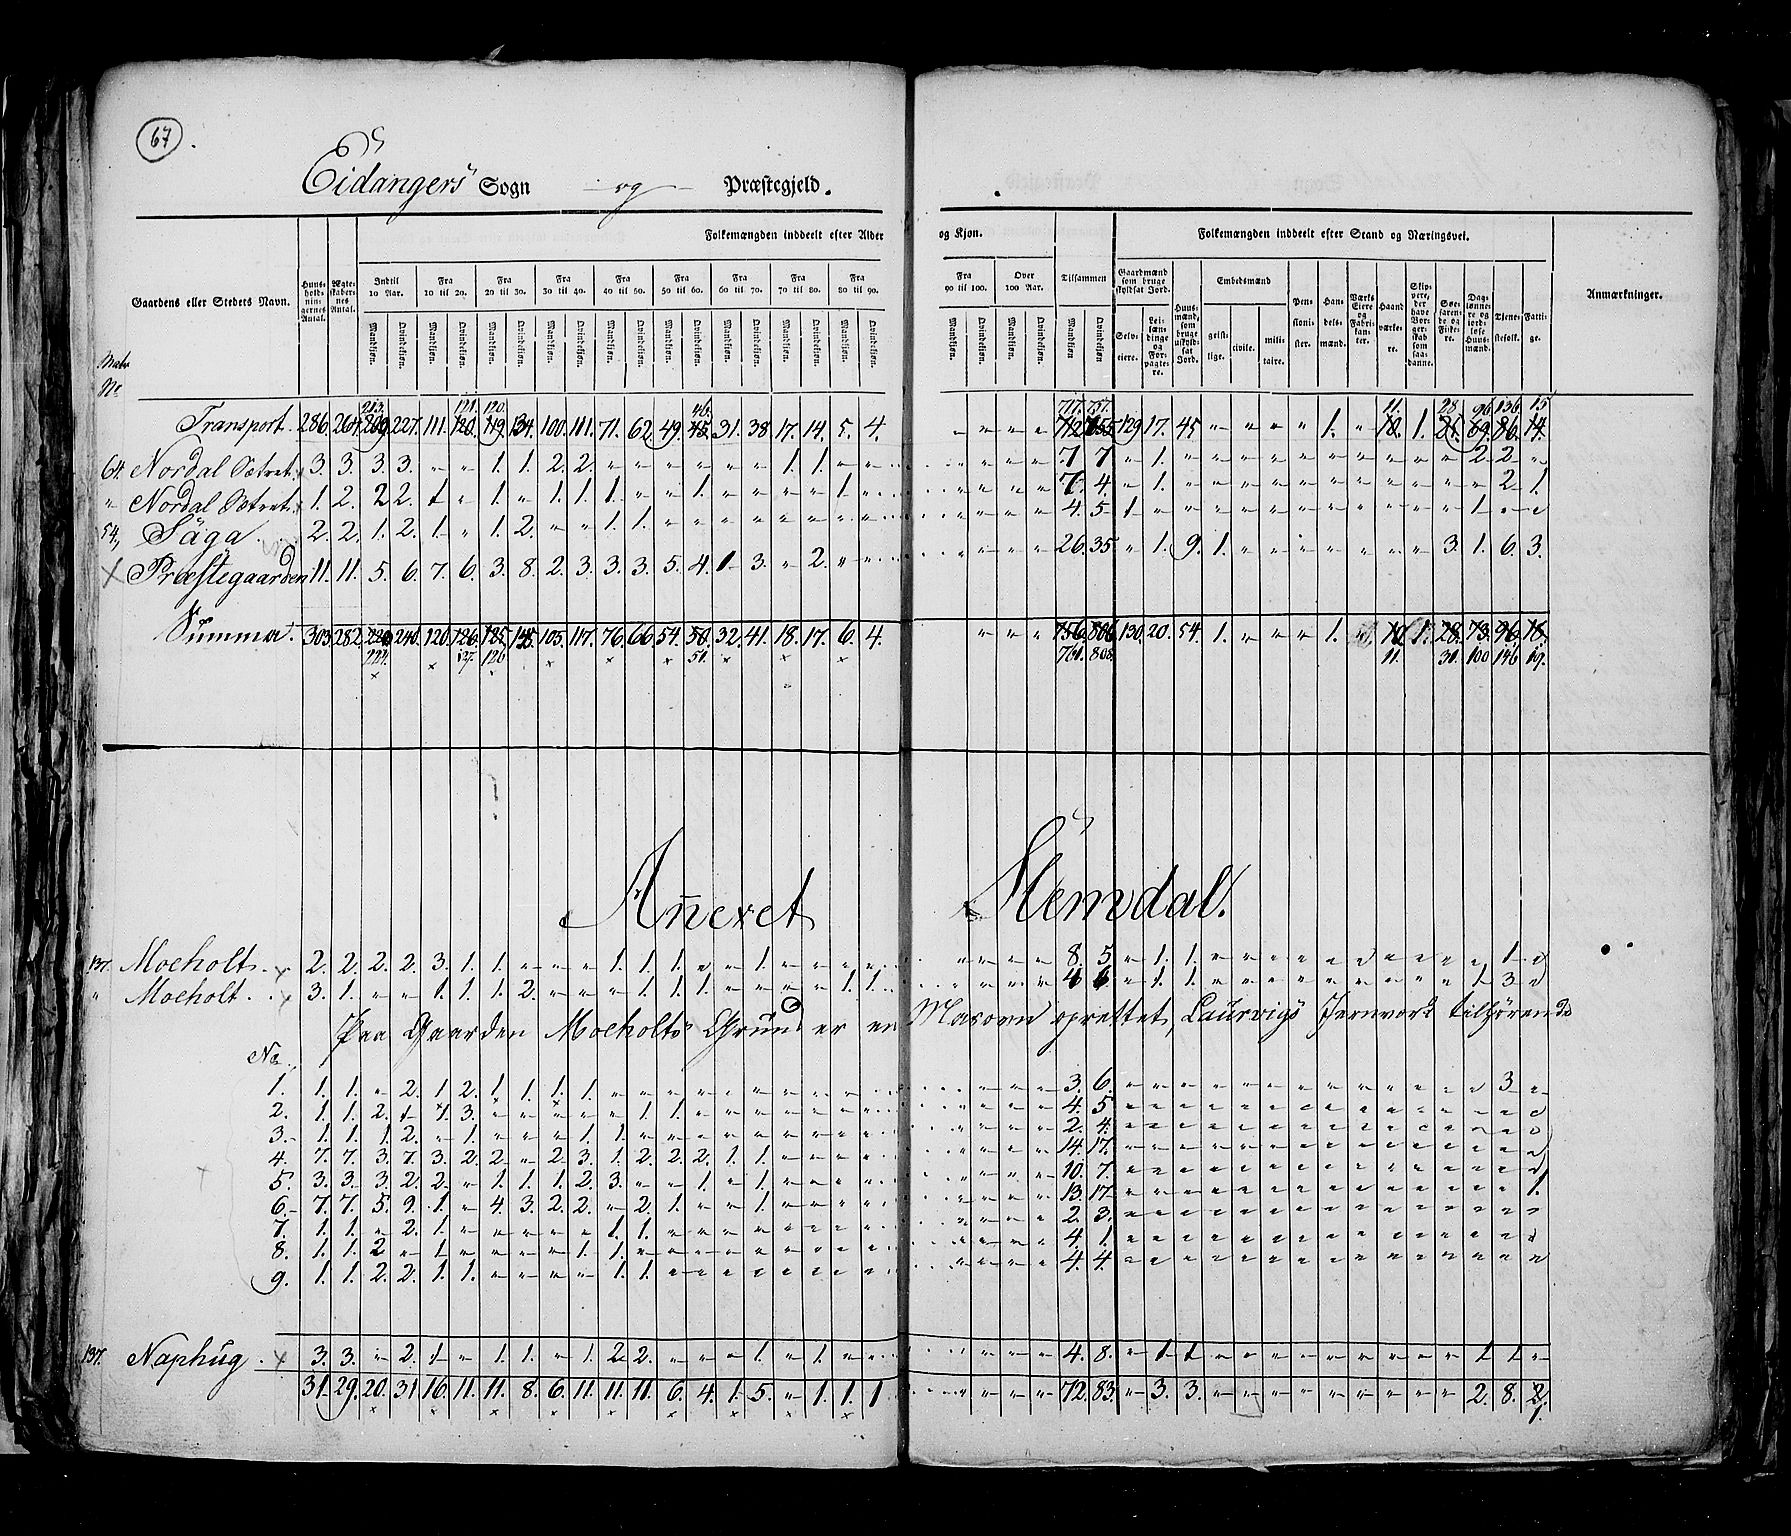 67.
Eidangers Sogn og Præstegjeld.
Folkemængden inddeelt efter Alder og Kjøn. Folkemængden inddeelt efter Stand og Næringsvei.
Gaardens eller Stedets Navn. Huusholdningernes Antal. Ægteskabernes Antal. Indtil 10 Aar. Fra 10 til 20. Fra 20 til 30. Fra 30 til 40. Fra 40 til 50. Fra 50 til 60. Fra 60 til 70. Fra 70 til 80. Fra 80 til 90. Fra 90 til 100. Over 100 Aar. Tilsammen Gaardmænd som bruge skyldsat Jord. Huusmænd, som bruge uskyldsat Jord. Embedsmænd Pensionister. Handelsmænd. Værks Eiere og Fabrikanter. Haandværkere. Søefarende og Fiskere. Tjenestefolk. Fattige. Anmærkninger.
Mandkjøn. Qvindekjøn. Selveiere. Leilændinge og Forpagtere. geistlige. civile. militaire.
Matr No
213. 121. 120. 46. 717. 757. 11. 28 96 136 15
Transport. 286. 264. 209. 227. 111. 120. 119. 134. 100. 111. 71. 62. 49. 45. 31. 38. 17. 14. 5. 4. " " " " 712 755 129 17. 45 " " " " 1. " 10. 1. 21. 69. 86. 14.
64. Nordal Sætret. 3. 3. 3. 3. " " 1. 1. 2. 2. " " " " " " 1. 1. " " " " " " 7 7 " 1. " " " " " " " " " " 2. 2. "
" Nordal Sætret. 1. 2. 2 2. 1 " 1. " 1. 1. 1. " " 1. " " " " 1. " " " " " 7. 4. " 1. " " " " " " " " " " " 2. 1.
54. Säga. 2. 2. 1. 2. 1. " 1. 2. " " 1. 1. " " " " " " " " " " " " 4. 5 1 " " " " " " " " " " " 1. " "
Præstegaarden 11. 11. 5. 6. 7. 6. 3. 8. 2. 3. 3. 3. 5. 4. 1 3. " 2. " " " " " " 26. 35. " 1. 9. 1. " " " " " " " 3. 1. 6. 3.
Summa. 303. 282. 220. 240. 120. 126. 125. 145. 105. 117. 76. 66. 54. 50. 32. 41. 18. 17. 6. 4. " " " " 756. 806. 130. 20. 54. 1. " " " 1. 10. 1. 28. 73. 96. 18.
221. 127. 126 51. 761. 808. 11. 31. 100 146 19.
Anexet Slemdal.
137. Moeholt. 2. 2. 2. 2. 3. 1. 1. " " " 1. 1. 1. " " 1. " " " " " " " " 8. 5 " 1. 1. " " " " " " " " " " 1. "
" Moeholt. 3. 1. " " 1. 1. 1. 2. " " " 1. 1. 1. " " " " 1. 1. " " " " 4 6 " 1. 1. " " " " " " " " " 1 3. "
Paa Gaarden Moeholts Grund er en Masovn oprettet, Laurvigs Jernverk tilhørende
No.
1. 1. 1. " 2. 1. 2. 1. 1. 1. 1. " " " " " " " " " " " " " " 3. 6. " " " " " " " " " " " " " 3 "
2. 1. 1. 2. 1 1. 3. " " " " " 1. 1. " " " " " " " " " " " 4. 5
3. 1. 1. 1. 2. " 1. " " " 1. 1. " " " " " " " " " " " " " 2. 4.
4. 7. 7. 3. 7. 3. 2. 2. " 2. 3. 1. 2. 2. 2. 1. 1. " " " " " " " " 14. 17.
5. 3. 3. 3. 2. 2. " 1. 1. 1. 2. 3. " " 1. " 1. " " " " " " " " 10. 7.
6. 7. 7. 5. 9. 1. " 4. 3. 2. 2. " 2. 1. " " 1. " " " " " " " " 13. 17. 1.
7. 1. 1. " 2. 1. " " " " " 1. 1. " " " " " " " " " " " " 2. 3.
8. 1. 1. 2 " 1. " " " " 1. 1. " " " " " " " " " " " " " 4. 1.
9. 1. 1. 2. 2. 1. 1. " " " " 1. 1. " " " " " " " " " " " " 4. 4.
137. Naphug. 3. 3. " 2. 1 " 1. 1. " 1. 2 2. " " " 1. " 1. " " " " " " 4. 8. " 1 1. " " " " " " " " " 1 1. "
31. 29. 20. 31 16. 11. 11. 8. 6. 11. 11. 11. 6. 4. 1. 5. " 1. 1. 1 " " " " 72. 83. " 3. 3. " " " " " " " " " 2. 8. 2.
1.